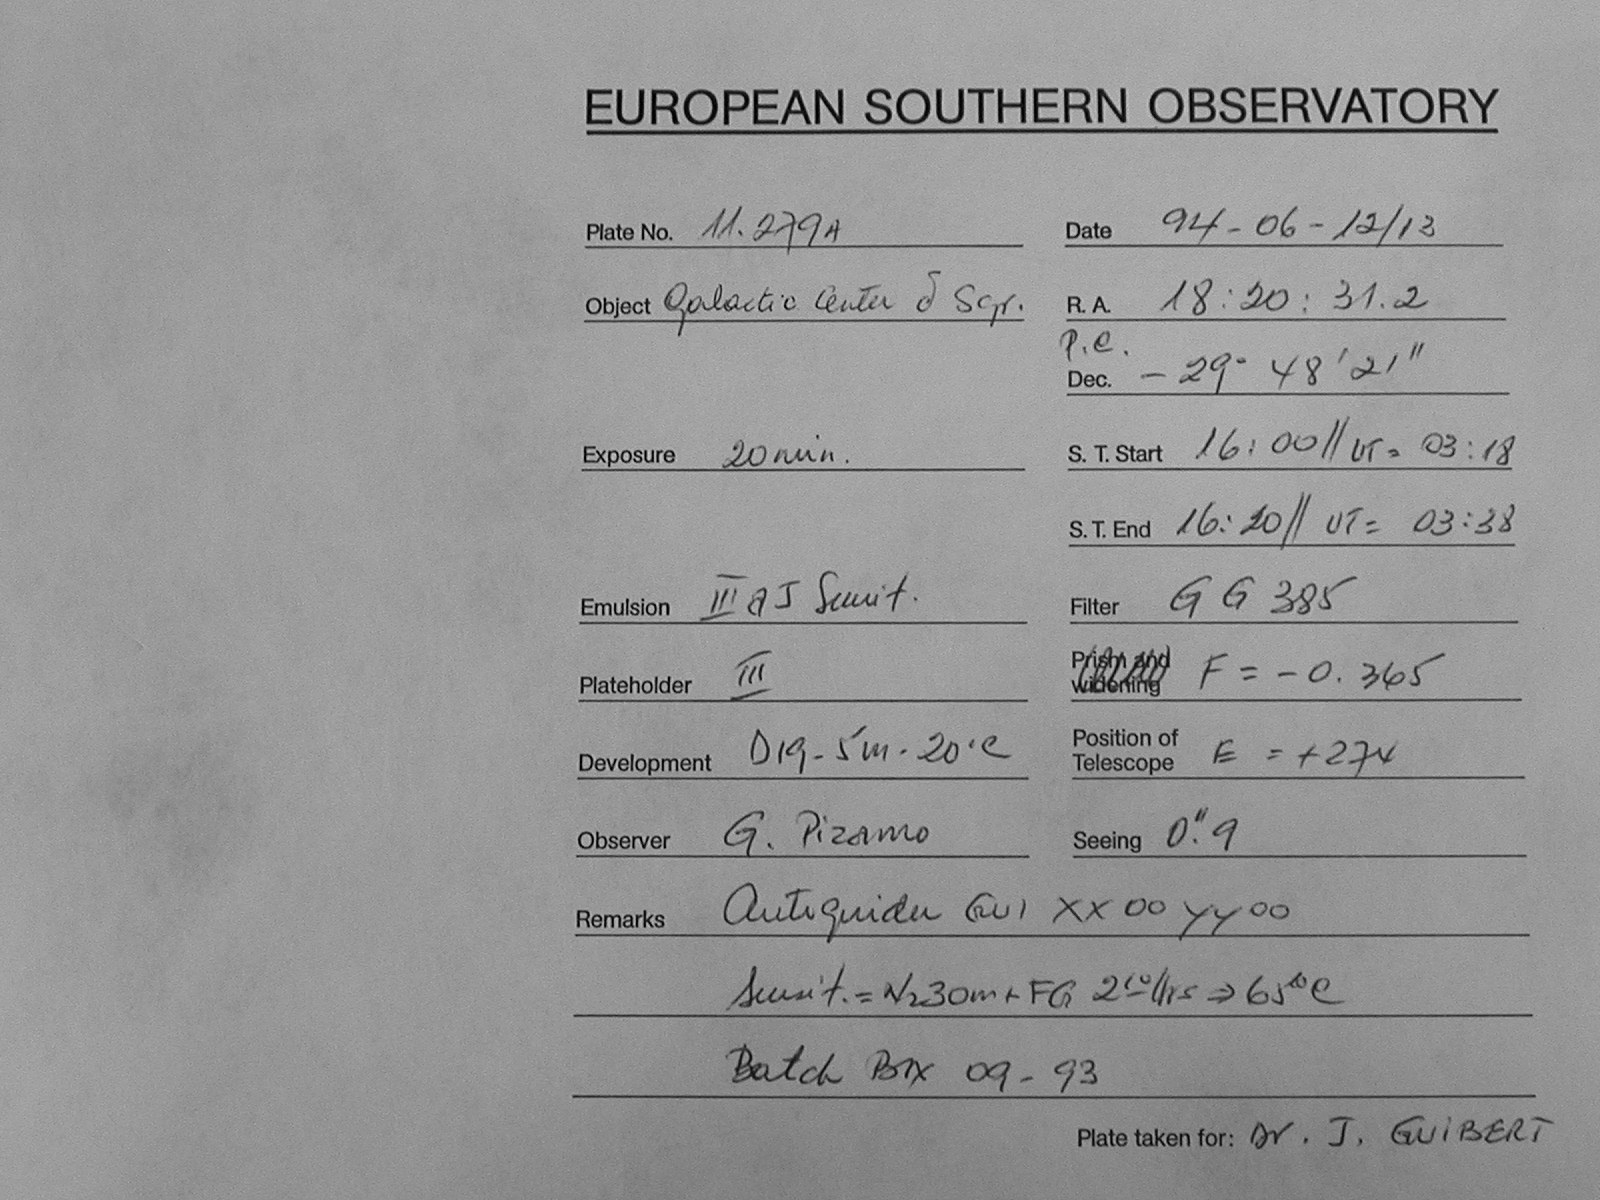 EUROPEAN SOUTHERN OBSERVATORY
Plate No. 11.279A Date 94-06-12/13
Object Galactic Center δ Sgr. R. A. 18:20:31.2
P.e.
Dec. -29° 48' 21"
Exposure 20 min. S. T. Start 16:00// UT= 03:18
S. T. End 16:20// UT= 03:38
Emulsion III a J Sensit. Filter G G 385
Plateholder III Prism and widening F = -0.365
Development D19-5m-20°C Position of Telescope E = +274
Observer G. Pizarro Seeing 0."9
Remarks Autoguider XX 00 YY 00
Sensit. = N230m + FG hrs ⇒ 65°C
Batch Box 09-93
Plate taken for: Dr. J. GUIBERT